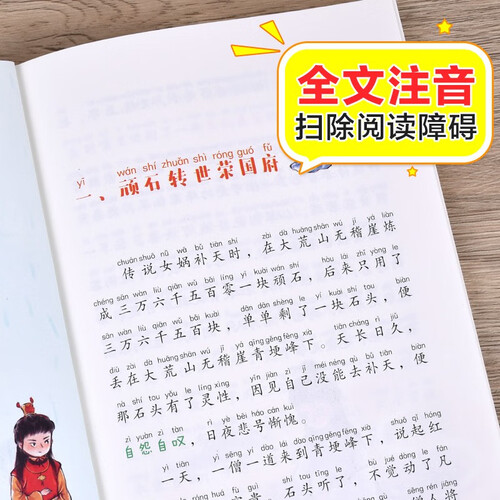 全文注音
扫除阅读障碍
yī wán shí zhuǎn shì róng guó fǔ
一、顽石转世荣国府
chuán shuō nǚ wā bǔ tiān shí zài dà huāng shān wú jī yá liàn
传说女娲补天时，在大荒山无稽崖炼
chéng sān wàn liù qiān wǔ bǎi líng yī kuài wán shí hòu lái zhǐ yòng le
成三万六千五百零一块顽石，后来只用了
sān wàn liù qiān wǔ bǎi kuài dān dān shèng le yí kuài shí tou biàn
三万六千五百块，单单剩了一块石头，便
diū zài dà huāng shān wú jī yá qīng gěng fēng xià tiān cháng rì jiǔ
丢在大荒山无稽崖青埂峰下。天长日久，
nà shí tou yǒu le líng xìng yīn jiàn zì jǐ méi néng qù bǔ tiān biàn
那石头有了灵性，因见自己没能去补天，便
zì yuàn zì tàn rì yè bēi háo cán kuì
自怨自叹，日夜悲号惭愧。
yì tiān yì sēng yí dào lái dào qīng gěng fēng xià shuō qǐ hóng
一天，一僧一道来到青埂峰下，说起红
shí tou tīng le bù jué dòng le fán
石头听了，不觉动了凡